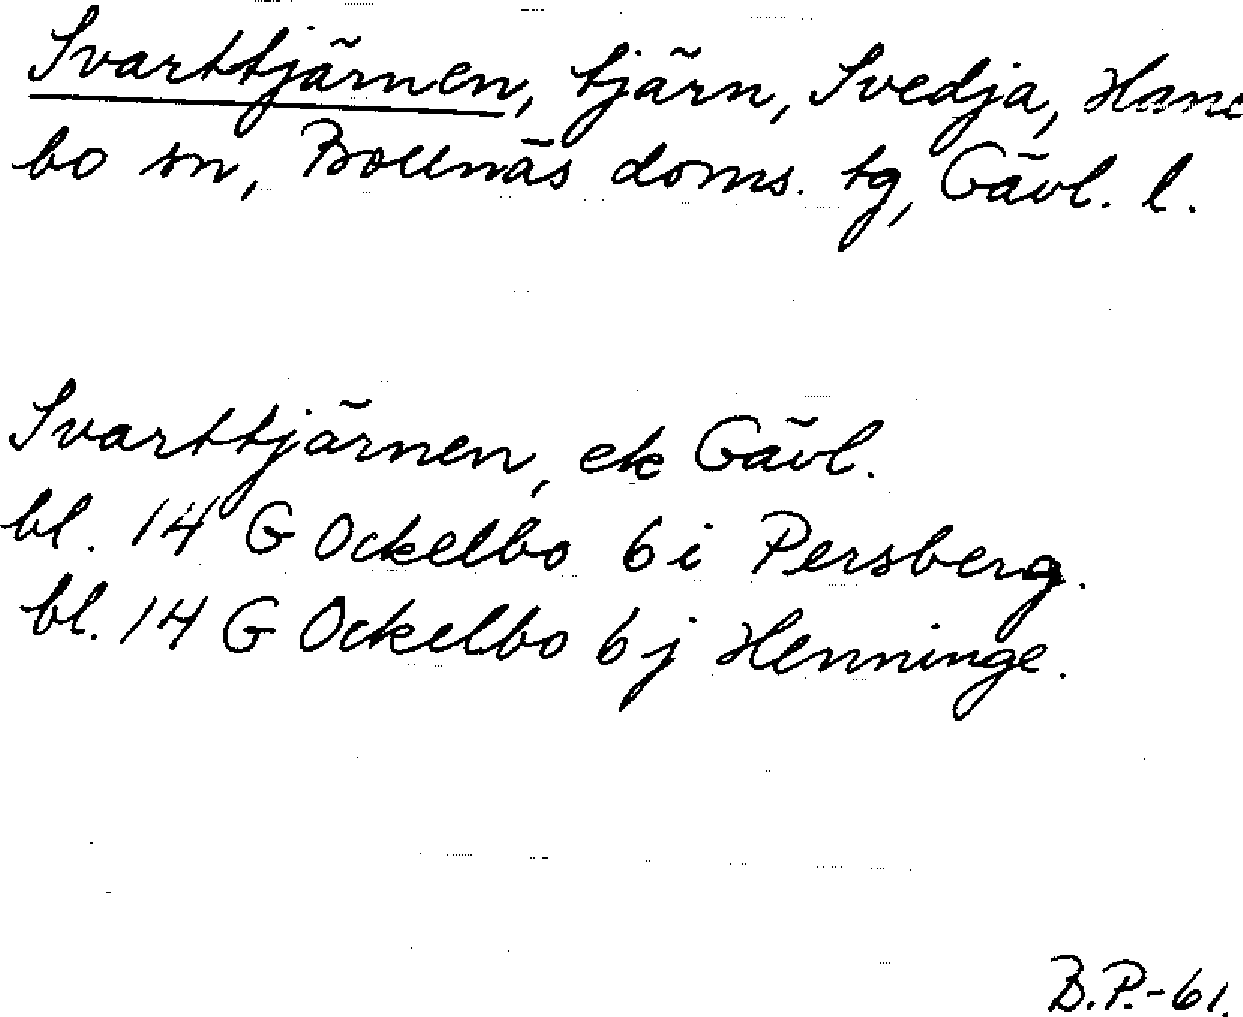 Svarttjärnen, tjärn, Svedja, Hane
bo sn, Bollnäs doms. tg, Gävl. l.
Svarttjärnen, ek Gävl.
bl. 14 G Ockelbo 6 i Persberg.
bl. 14 G Ockelbo 6 j Henninge.
B.P.-61.